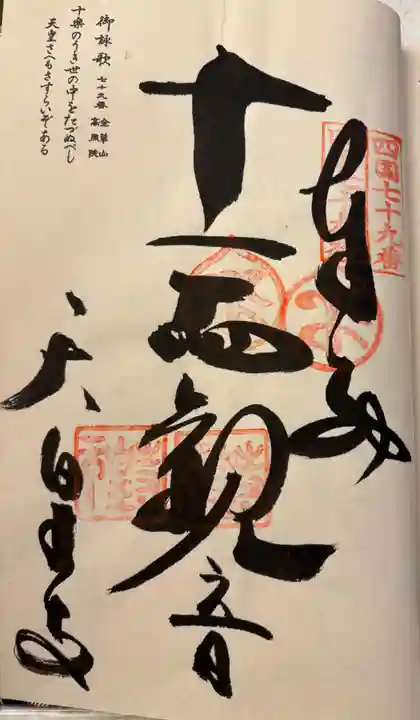 四国七十九番
奉納
十一面観音
天皇寺
御詠歌 七十九番 金華山 高照院
十楽のうき世の中をたづぬべし
天皇さへもさすらいぞある